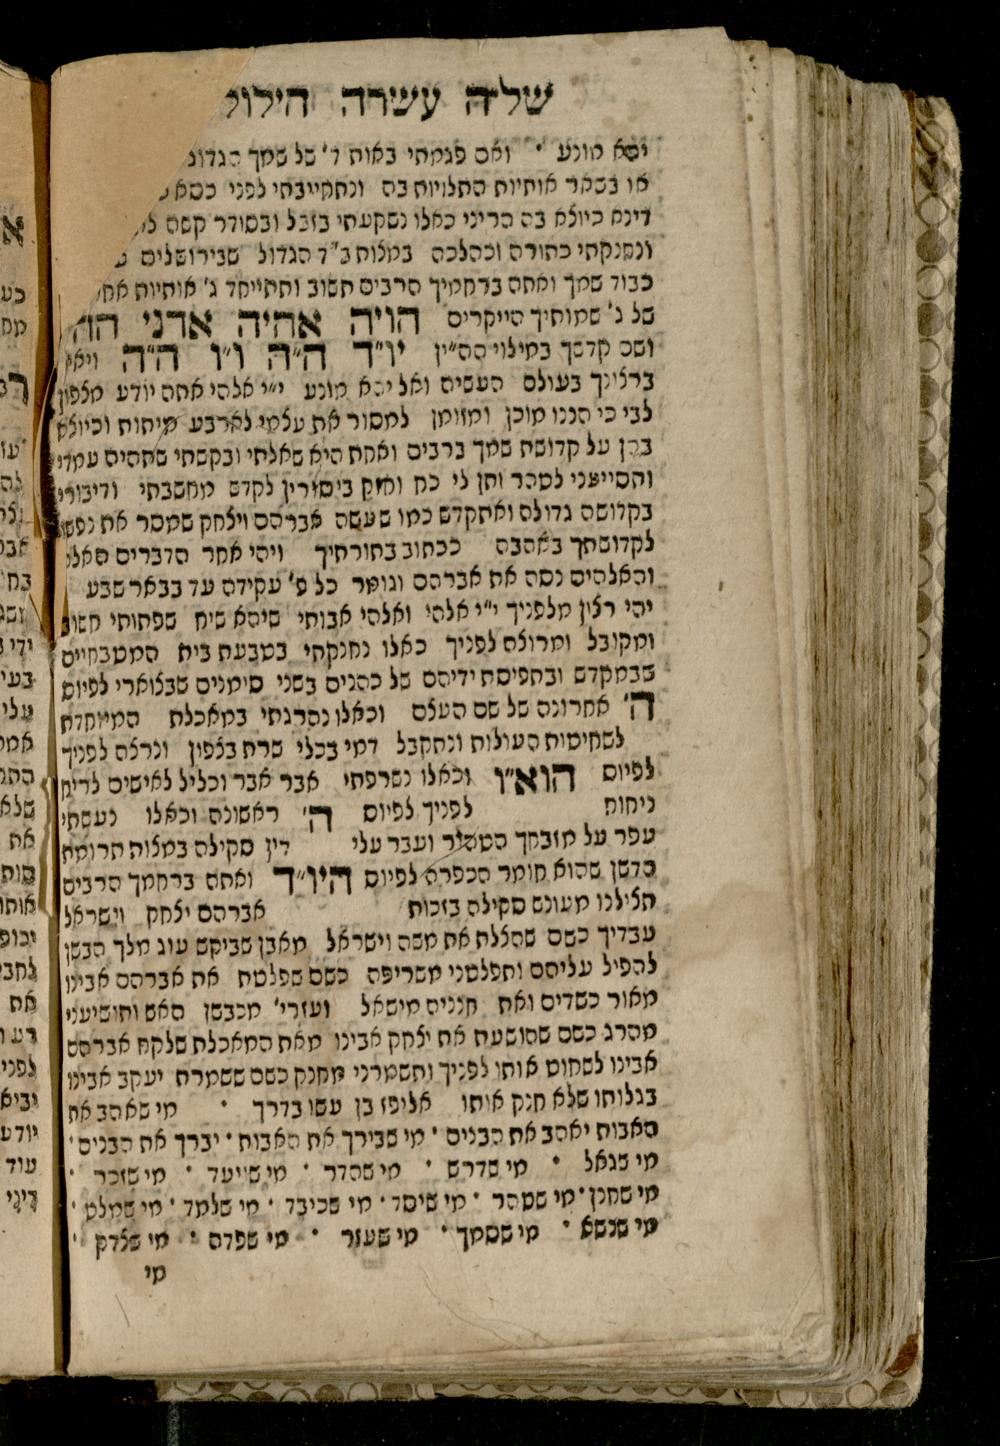 שלה עשרה הילול
יהא מונע ׳ ואם פגמתי באות ד׳ של שמך הגדול
או בשאר אותיות התלויות בה ונתחייבתי לפני כסא
דינא כיולא בה הריני כאלו נשקעתי בזבל ובסודר קשה
ונחנקתי כתורה וכהלכה במצות ב״ד הגדול שבירושלים
כבוד שמך ואתה ברחמיך הרבים תשוב ותתייחד ג׳ אותיות
של ג׳ שמותיך היקרים הויה אהיה אדני
ושם קדשך במילוי ההי״ן יו״ד ה״ה ו״ו ה״ה
ברצונך בעולם העשיה ואל יהא מונע י״י אלהי אתה יודע מצפון
לבי כי הנני מוכן ומזומן למסור את עצמי לארבע מיתות וכיוצא
בהן על קדושת שמך ברבים ואחת היא שאלתי ובקשתי שתהיה עמדי
ותסייעני לטהר ותן לי כח וחזק ביסורין לקדש מחשבתי ודיבורי
בקדושה גדולה ואתקדש כמו שעשה אברהם ויצחק שמסר את נפשו
לקדושתך באהבה ככתוב בתורתיך ויהי אחר הדברים האלה
והאלהים נסה את אברהם וגומר כל פ׳ עקידה עד בבאר שבע
יהי רצון מלפניך י״י אלהי ואלהי אבותי שיהא שיח שפתותי חשוב
ומקובל ומרוצה לפניך כאלו נחנקתי בטבעת בית המטבחיים
שבמקדש ובתפיסת ידיהם של כהנים בשני סימנים שבצוארי לפיוס
ה׳ אחרונה של שם העצם וכאלו נהרגתי במאכלת המיוחדת
לשחיטות העולות ונתקבל דמי בכלי שרת בצפון ונרצה לפניך
לפיוס הוא״ו וכאלו נשרפתי אבר אבר וכליל לאישים לריח
ניחוח לפניך לפיוס ה׳ ראשונה וכאלו נעשתי
עפר על מזבחך הטהור ועבר עלי דין סקילה במצות תרומת
הדשן שהוא חומר הכפרה לפיוס היו״ד ואתה ברחמך הרבים
תצילנו מעונש סקילה בזכות אברהם יצחק וישראל
עבדיך כשם שהצלת את משה וישראל מאבן שביקש עוג מלך הבשן
להפיל עליהם ותפלטני משריפה כשם שפלטת את אברהם אבינו
מאור כשדים ואת חנניה מישאל ועזרי׳ מכבשן האש ותושיעני
מהרג כשם שהושעת את יצחק אבינו מאת המאכלת שלקח אברהם
אבינו לשחוט אותו לפניך ותשמרני מחנק כשם ששמרת יעקב אבינו
בגלותו שלא חנק אותו אליפז בן עשו בדרך ׳ מי שאהב את
האבות יאהב את הבנים ׳ מי שבירך את האבות ׳ יברך את הבנים ׳
מי שגאל ׳ מי שדרש ׳ מי שהדר ׳ מי שייעד ׳ מי שזכר ׳
מי שחנן ׳ מי שטהר ׳ מי שיסד ׳ מי שכיבד ׳ מי שלמד ׳ מי שמלט ׳
מי שנשא ׳ מי שסמך ׳ מי שעזר ׳ מי שפדה ׳ מי שצדק ׳
מי